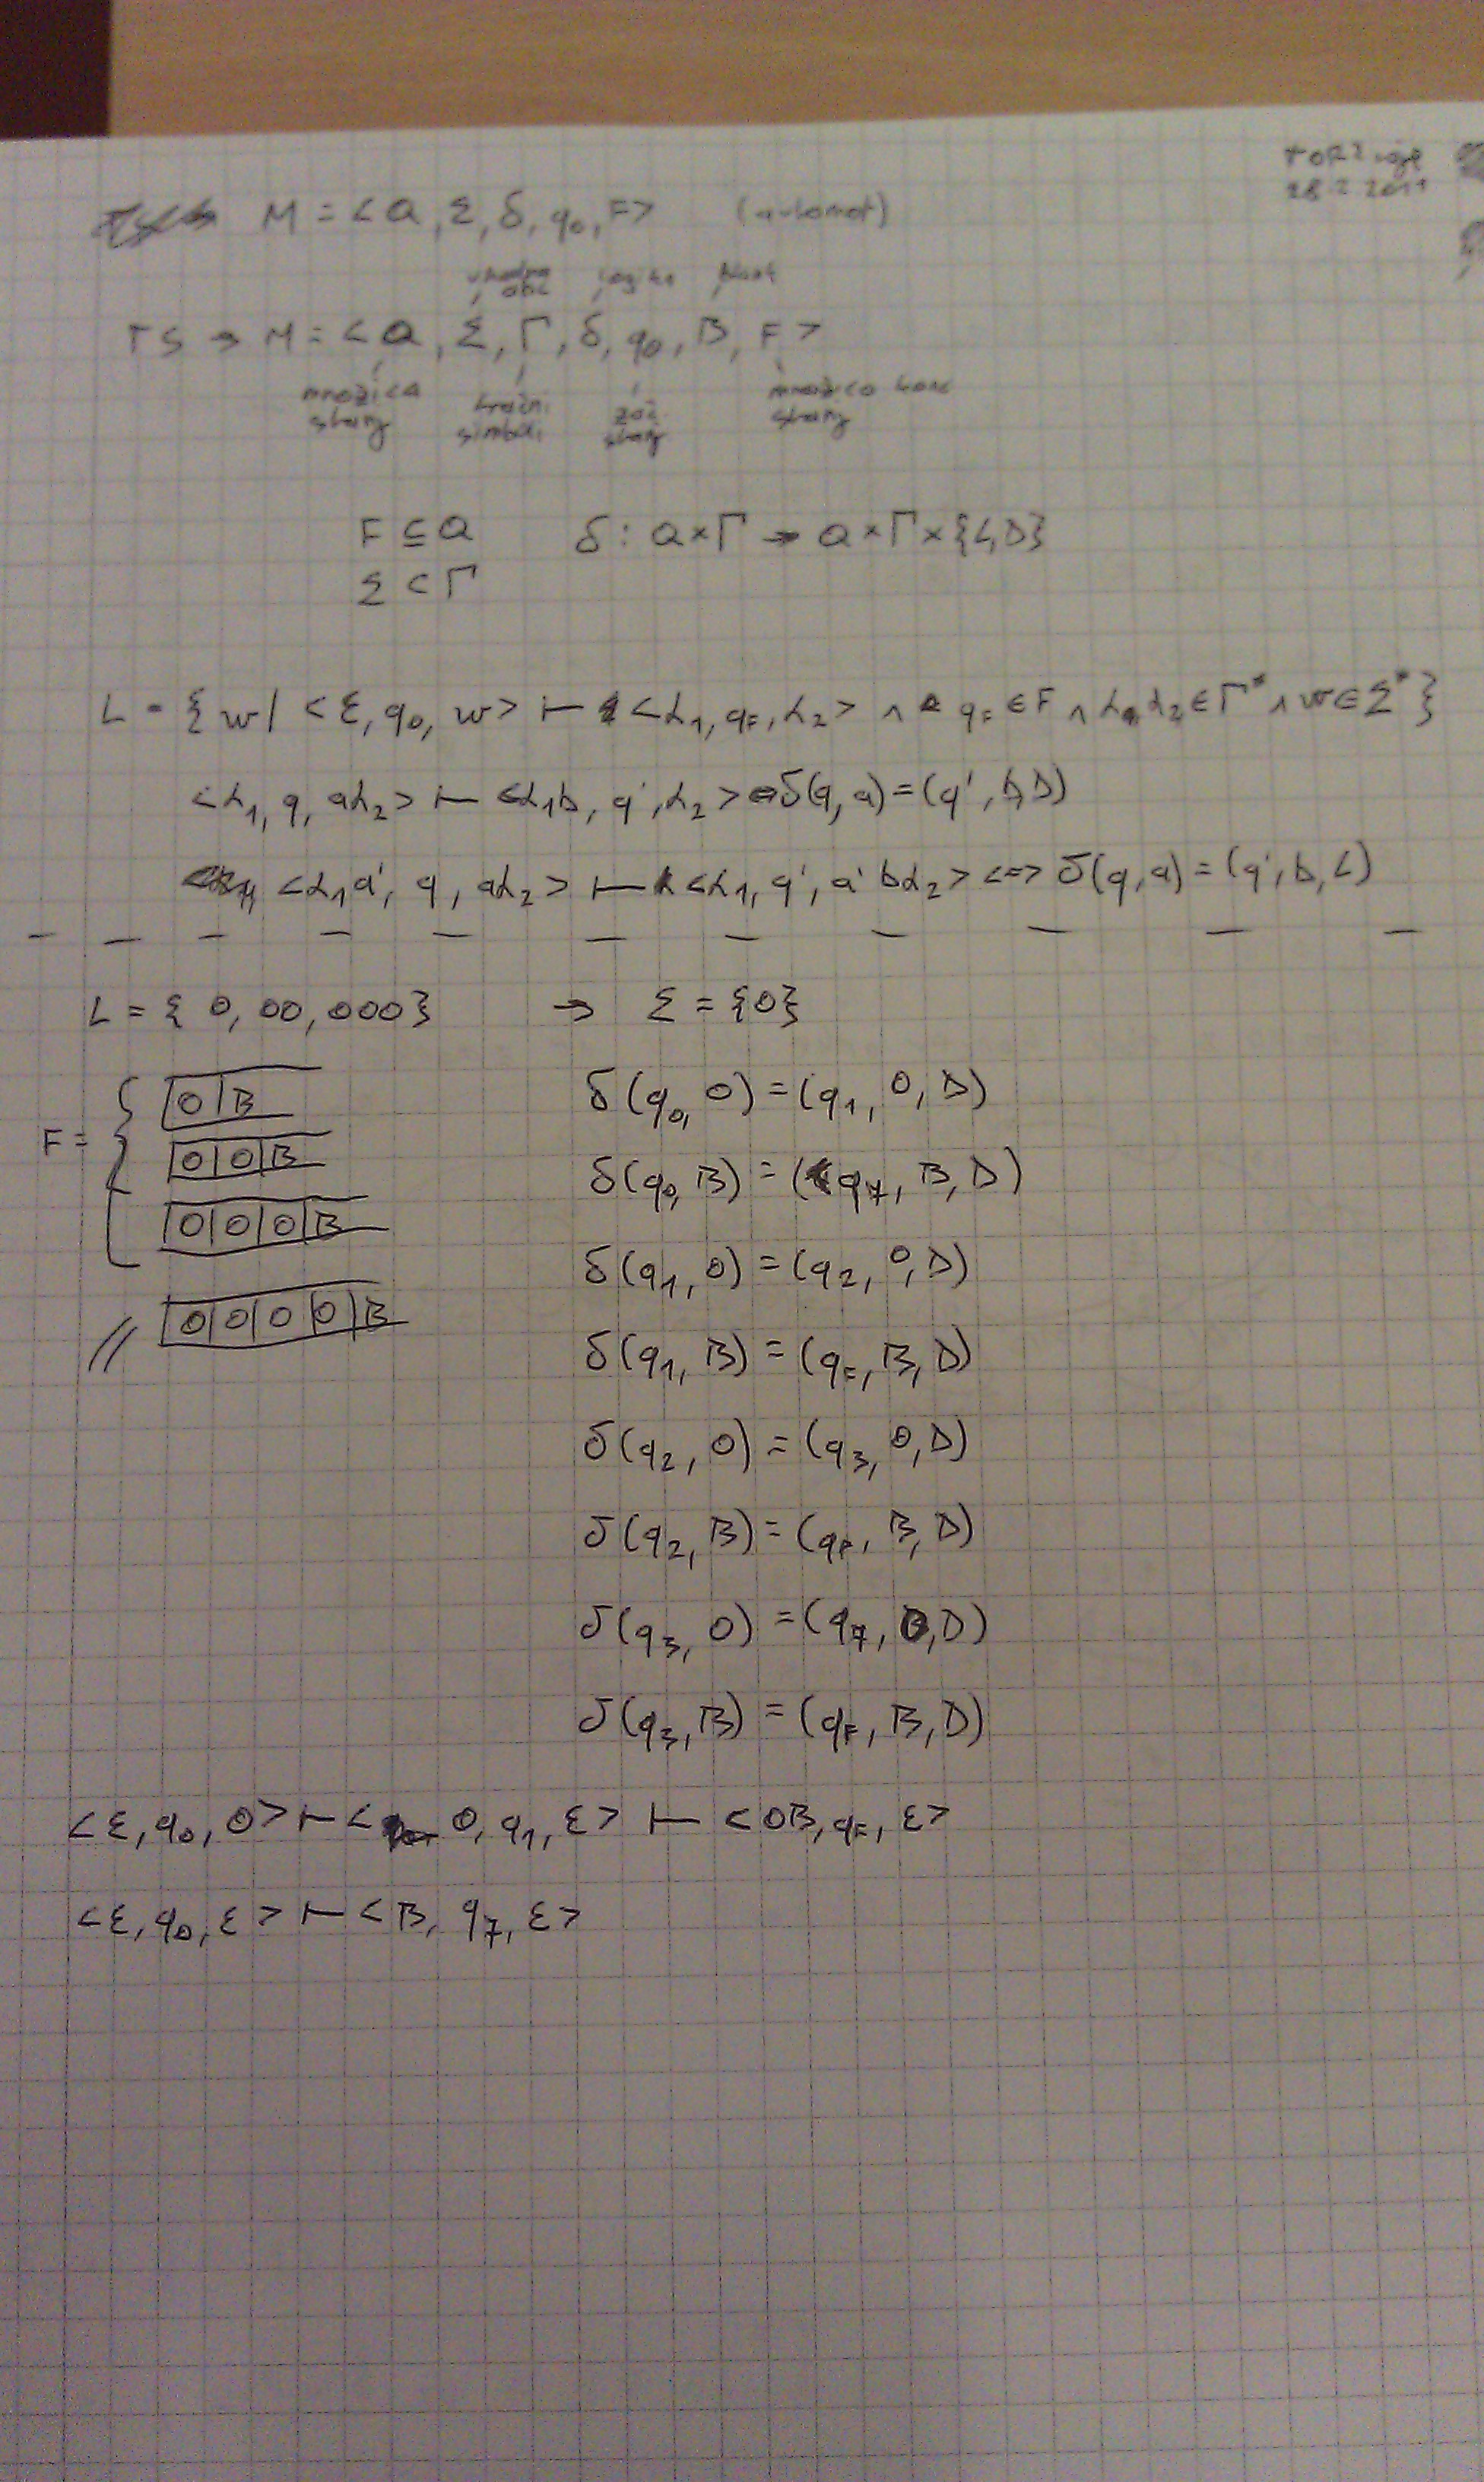 28.2.2011
M = <Q, Σ, δ, q₀, F> (avtomat)
vhodna
abc
TS → M = <Q, Σ, Γ, δ, q₀, B, F>
množica tračni zač množica konc
stanj simboli stanj stanj
F ⊆ Q δ : Q × Γ → Q × Γ × {L,D}
Σ ⊂ Γ
L = {w | <ε, q₀, w> ⊢ <α₁, q_F, α₂> ∧ q_F ∈ F ∧ α₁, α₂ ∈ Γ* ∧ w ∈ Σ*}
<α₁, q, aα₂> ⊢ <α₁b, q', α₂> ⇔ δ(q, a) = (q', b, D)
<α₁a', q, aα₂> ⊢ <α₁, q', a'bα₂> <=> δ(q, a) = (q', b, L)
L = {0, 00, 000} → Σ = {0}
F = { 0 B
0 0 B
0 0 0 B
// 0 0 0 0 B
δ(q₀, 0) = (q₁, 0, D)
δ(q₀, B) = (q₇, B, D)
δ(q₁, 0) = (q₂, 0, D)
δ(q₁, B) = (q_F, B, D)
δ(q₂, 0) = (q₃, 0, D)
δ(q₂, B) = (q_F, B, D)
δ(q₃, 0) = (q₇, 0, D)
δ(q₃, B) = (q_F, B, D)
<ε, q₀, 0> ⊢ <0, q₁, ε> ⊢ <0B, q_F, ε>
<ε, q₀, ε> ⊢ <B, q₇, ε>